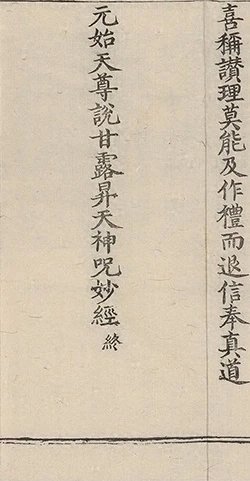 喜稱讃理莫能及作禮而退信奉真道
元始天尊說甘露昇天神呪妙經
終